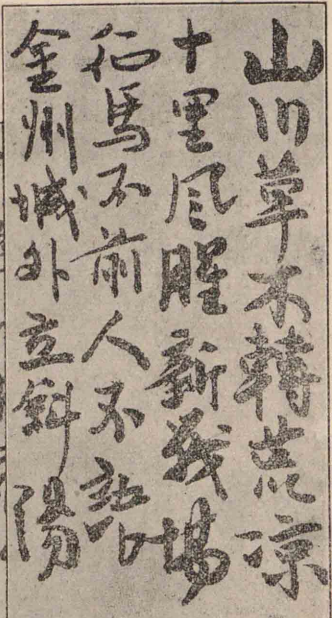 山川草木轉荒凉
十里風腥新戰場
征馬不前人不語
金州城外立斜陽